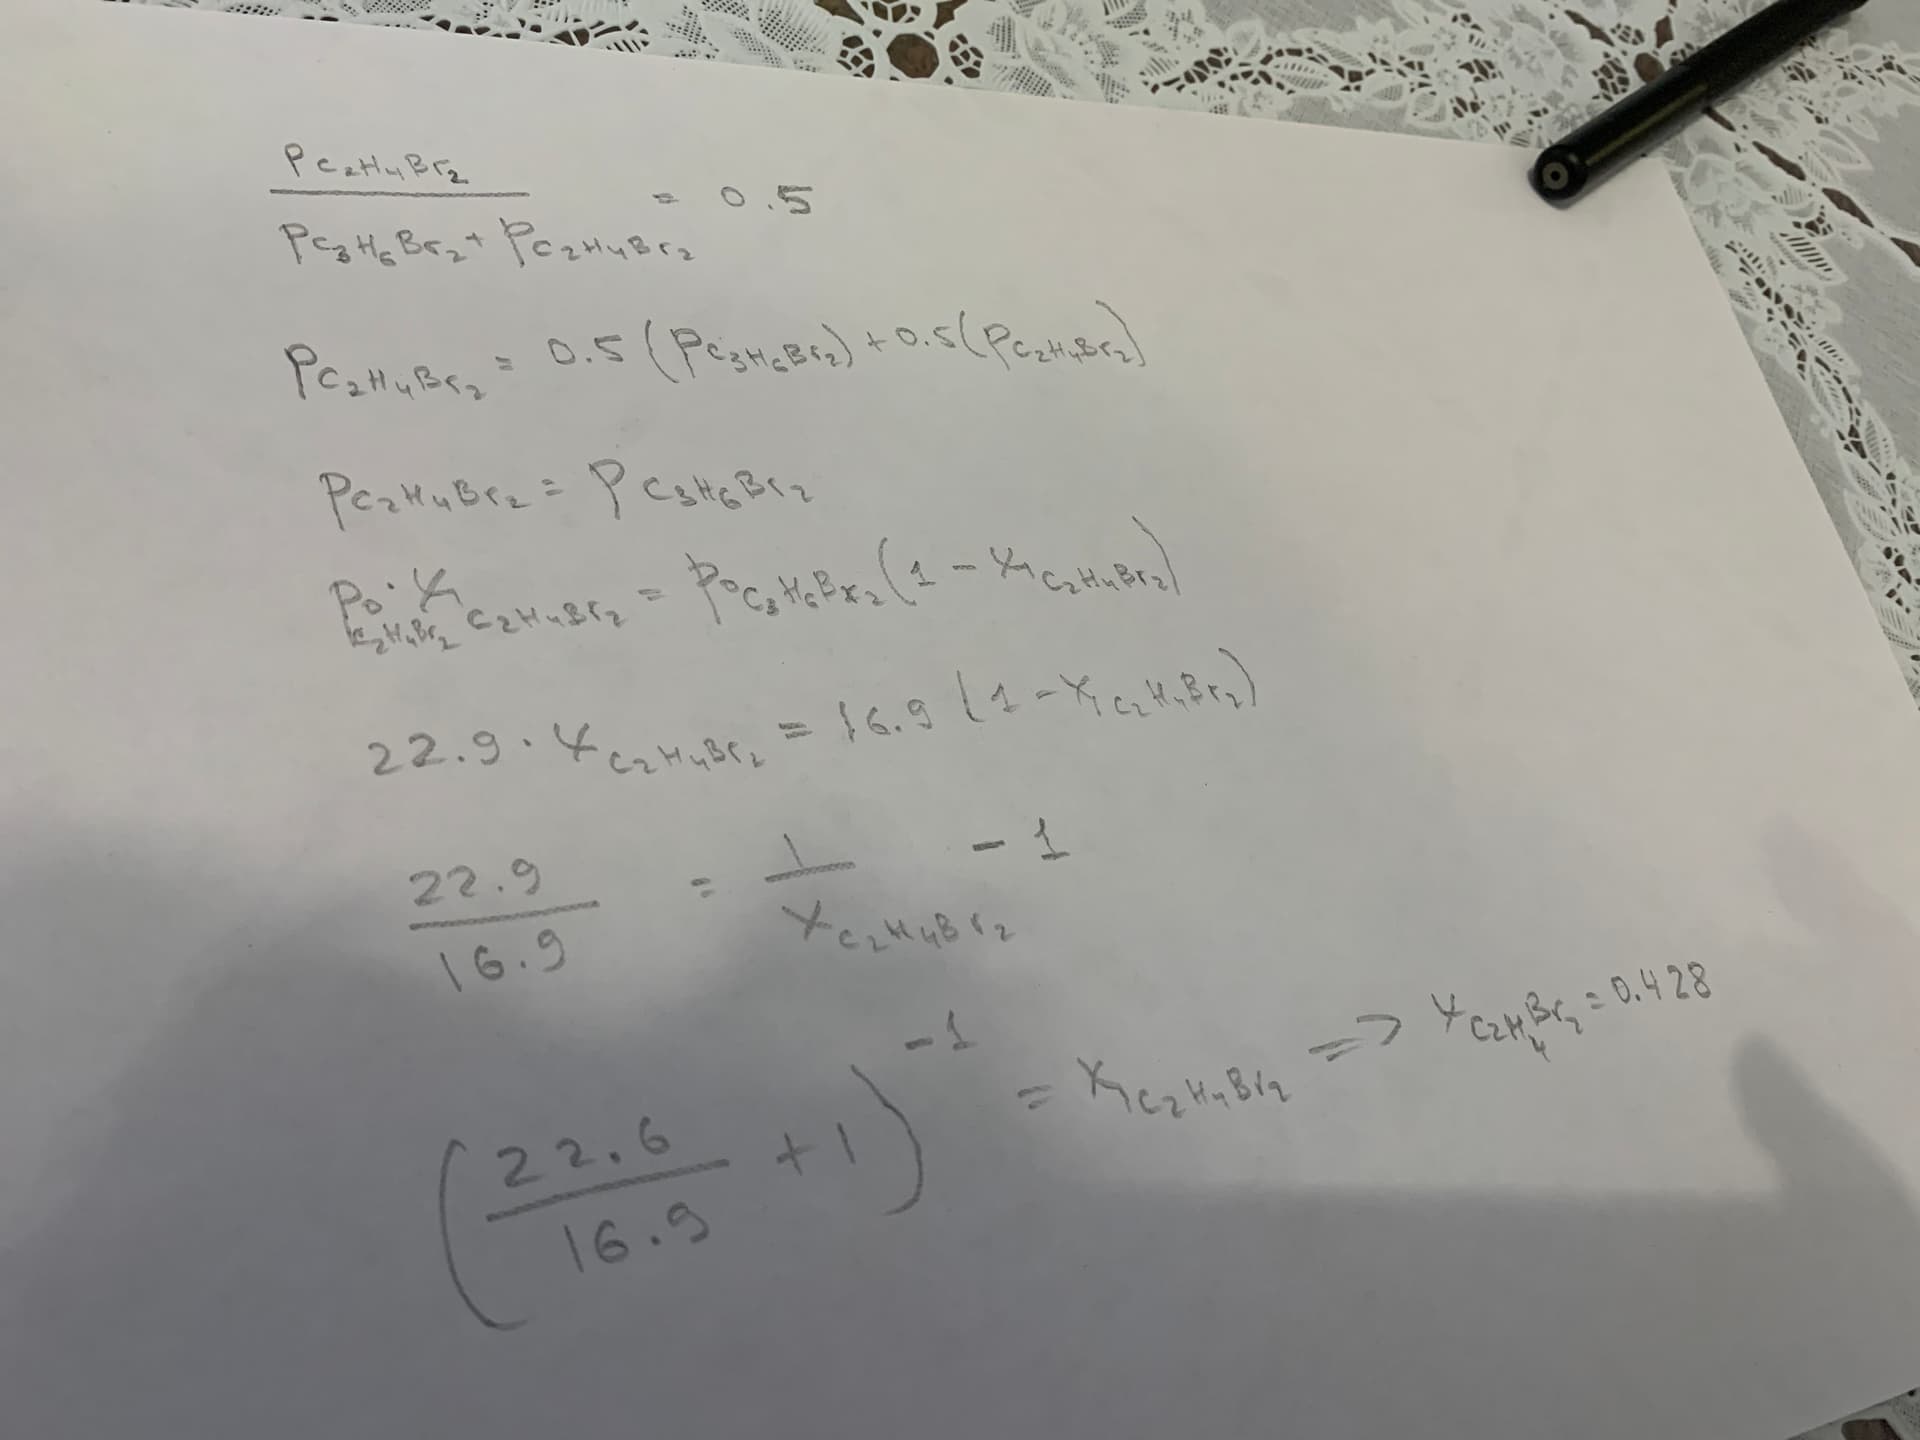 P C₂H₄Br₂ / (P C₃H₆Br₂ + P C₂H₄Br₂) = 0.5
P C₂H₄Br₂ = 0.5 (P C₃H₆Br₂) + 0.5 (P C₂H₄Br₂)
P C₂H₄Br₂ = P C₃H₆Br₂
P₀ C₂H₄Br₂ · X₁ C₂H₄Br₂ = P⁰ C₃H₆Br₂ (1 - X₁ C₂H₄Br₂)
22.9 · X C₂H₄Br₂ = 16.9 (1 - X₁ C₂H₄Br₂)
22.9 / 16.9 = 1 / X C₂H₄Br₂ - 1
(22.6 / 16.9 + 1)⁻¹ = X₁ C₂H₄Br₂ ⇒ X C₂H₄Br₂ = 0.428